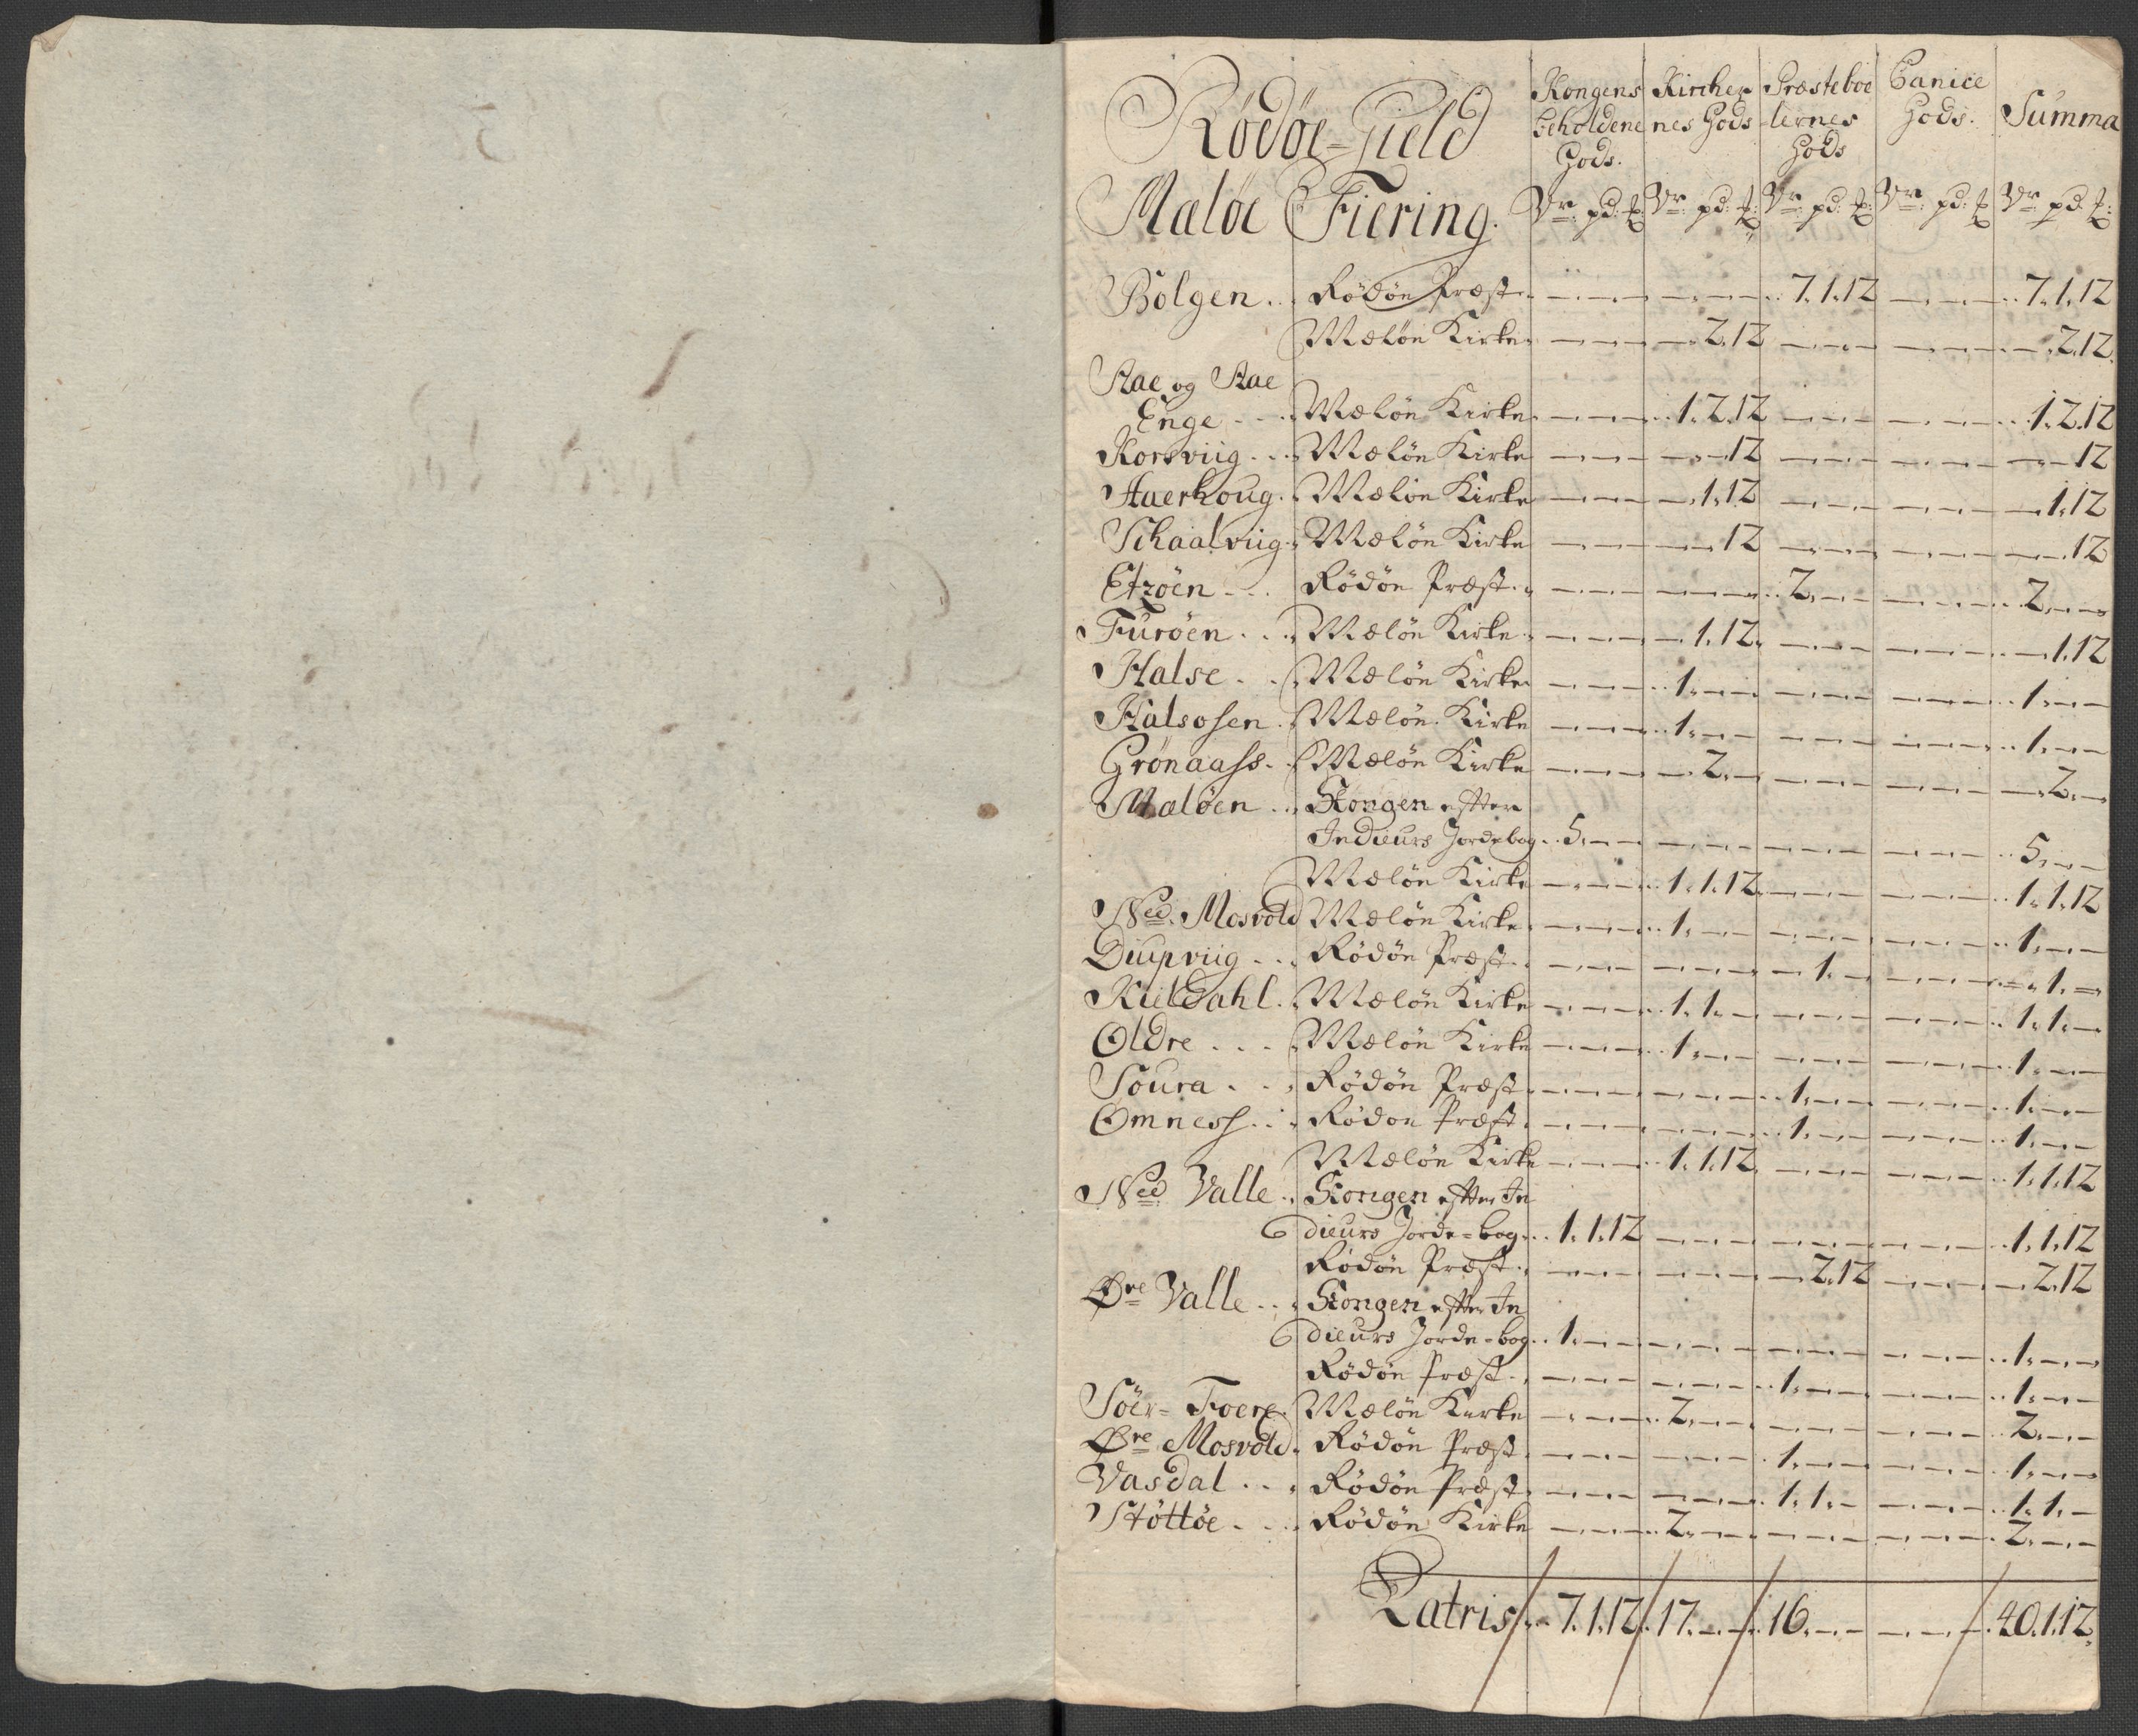 Rødøe=Gield
Kongens Kircher Præsteboe Canice
beholdene nes Gods lernes Gods. Summa
Gods. Gods
Maløe Fiering. Vr: pd: Vr: pd: Vr: pd: Vr: pd: Vr: pd:
Bolgen Rödön Præst 7. 1. 12 7. 1. 12
Meløn Kirke 2. 12 2. 12
Aae og Aae
Enge Meløn Kirke 1. 2. 12 1. 2. 12
Korsviig Meløn Kirke 12 12
Aaerhoug Meløn Kirke 1. 12 1. 12
Schaalviig Meløn Kirke 12 12
Etröen Rödön Præst 2 2
Furöen Meløn Kirke 1. 12 1. 12
Halse Meløn Kirke 1 1
Halsosen Meløn Kirke 1 1
Grönaass Meløn Kirke 2 2
Maløen Kongen efter
Indieurs Jordebog 5 5
Meløn Kirke 1. 1. 12 1. 1. 12
Ned. Mosvold Meløn Kirke 1 1
Diupviig Rödön Præst 1 1
Kieldahl Meløn Kirke 1. 1 1. 1
Oldre Meløn Kirke 1 1
Soura Rödön Præst 1 1
Omness Rödön Præst 1 1
Meløn Kirke 1. 1. 12 1. 1. 12
Ned Valle Kongen efter In
dieurs Jorde=bog 1. 1. 12 1. 1. 12
Rödön Præst 2. 12 2. 12
Øre Valle Kongen efter In
dieurs Jorde=bog 1 1
Rödön Præst 1 1
Söer= Foere Meløn Kirke 2 2
Øre Mosvold Rödön Præst 1 1
Vasdal Rödön Præst 1. 1 1. 1
Støttøe Rödön Kirke 2 2
Latris 7. 1. 12 17 16 40. 1. 12